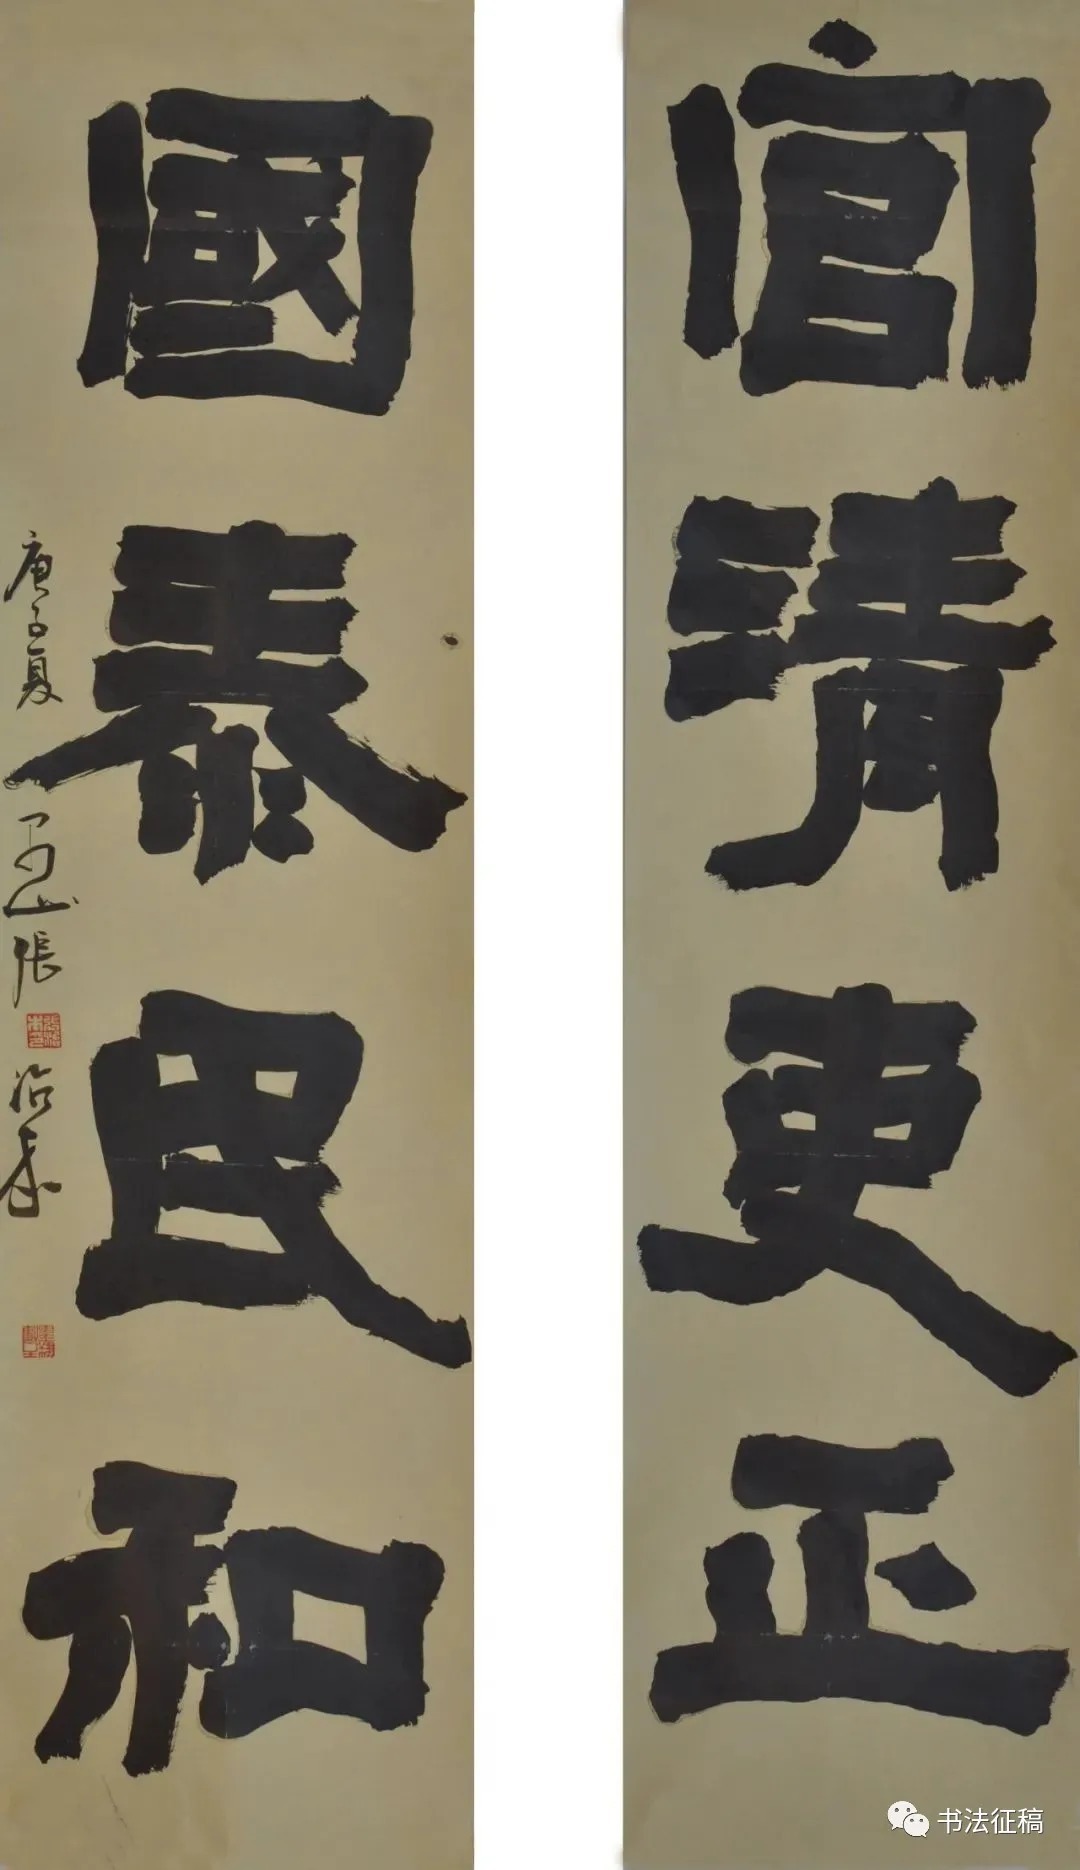 官清吏正
國泰民和
庚子夏
山張
书法征稿